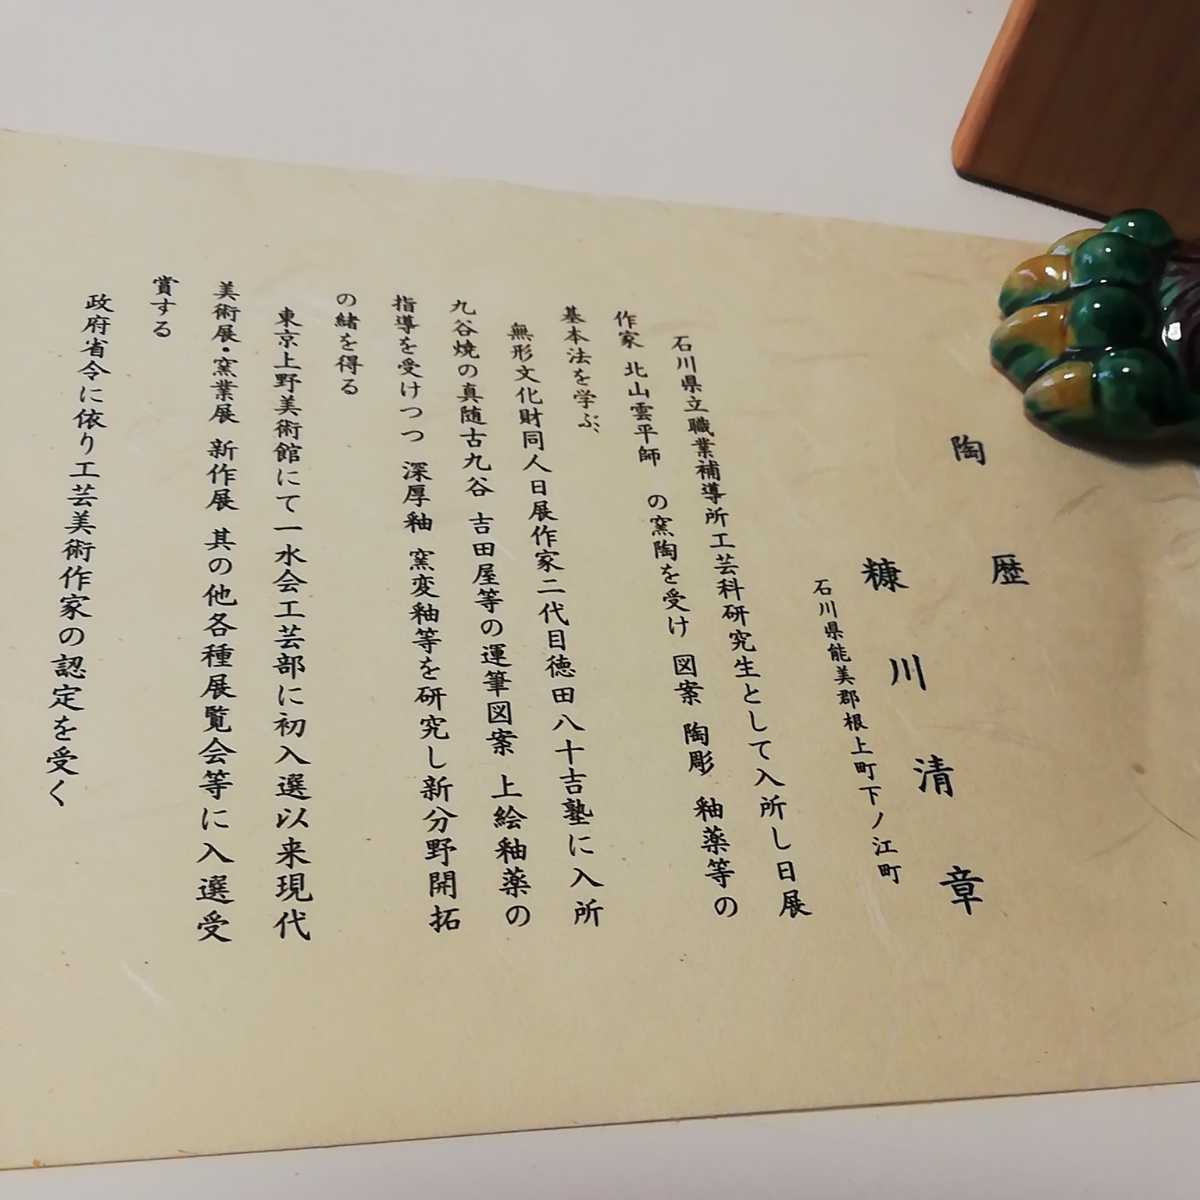 陶歴
糠川清章
石川県能美郡根上町下ノ江町
石川県立職業補導所工芸科研究生として入所し日展
作家 北山雲平師 の窯陶を受け 図案 陶彫 釉薬等の
基本法を学ぶ、
無形文化財同人日展作家二代目徳田八十吉塾に入所
九谷焼の真随古九谷 吉田屋等の運筆図案 上絵釉薬の
指導を受けつつ 深厚釉 窯変釉等を研究し新分野開拓
の緒を得る
東京上野美術館にて一水会工芸部に初入選以来現代
美術展・窯業展 新作展 其の他各種展覧会等に入選受
賞する
政府省令に依り工芸美術作家の認定を受く